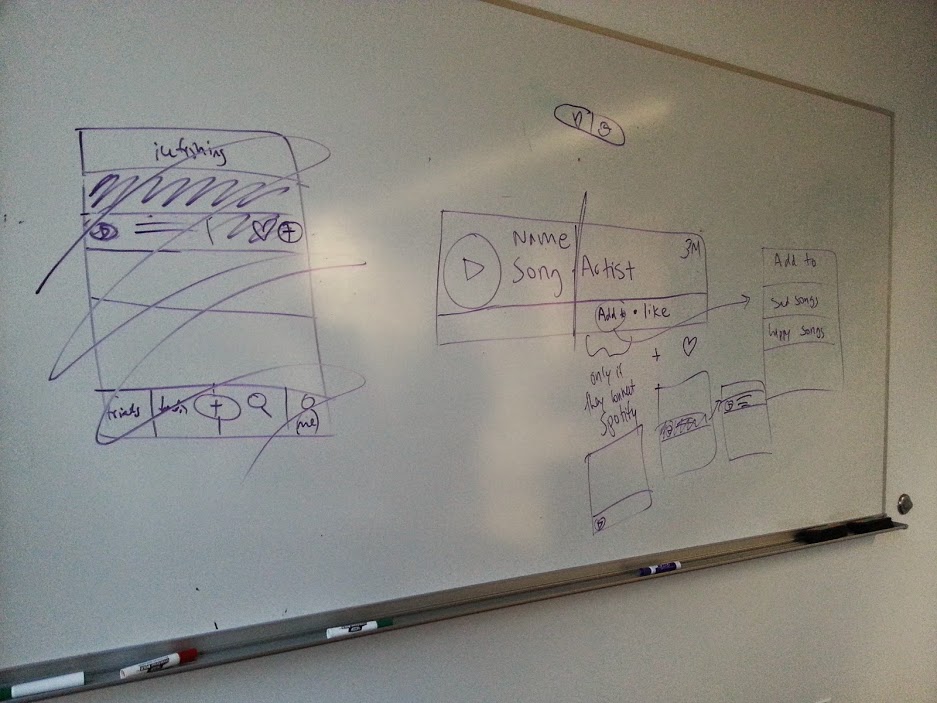 icefishing
+
+
(me)
Name
Song
Artist
3M
Add to • like
+
only if
they connect
Spotify
Add to
Sad songs
happy songs